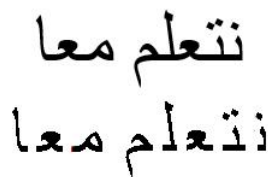 نتعلم معا
نتعلم معا